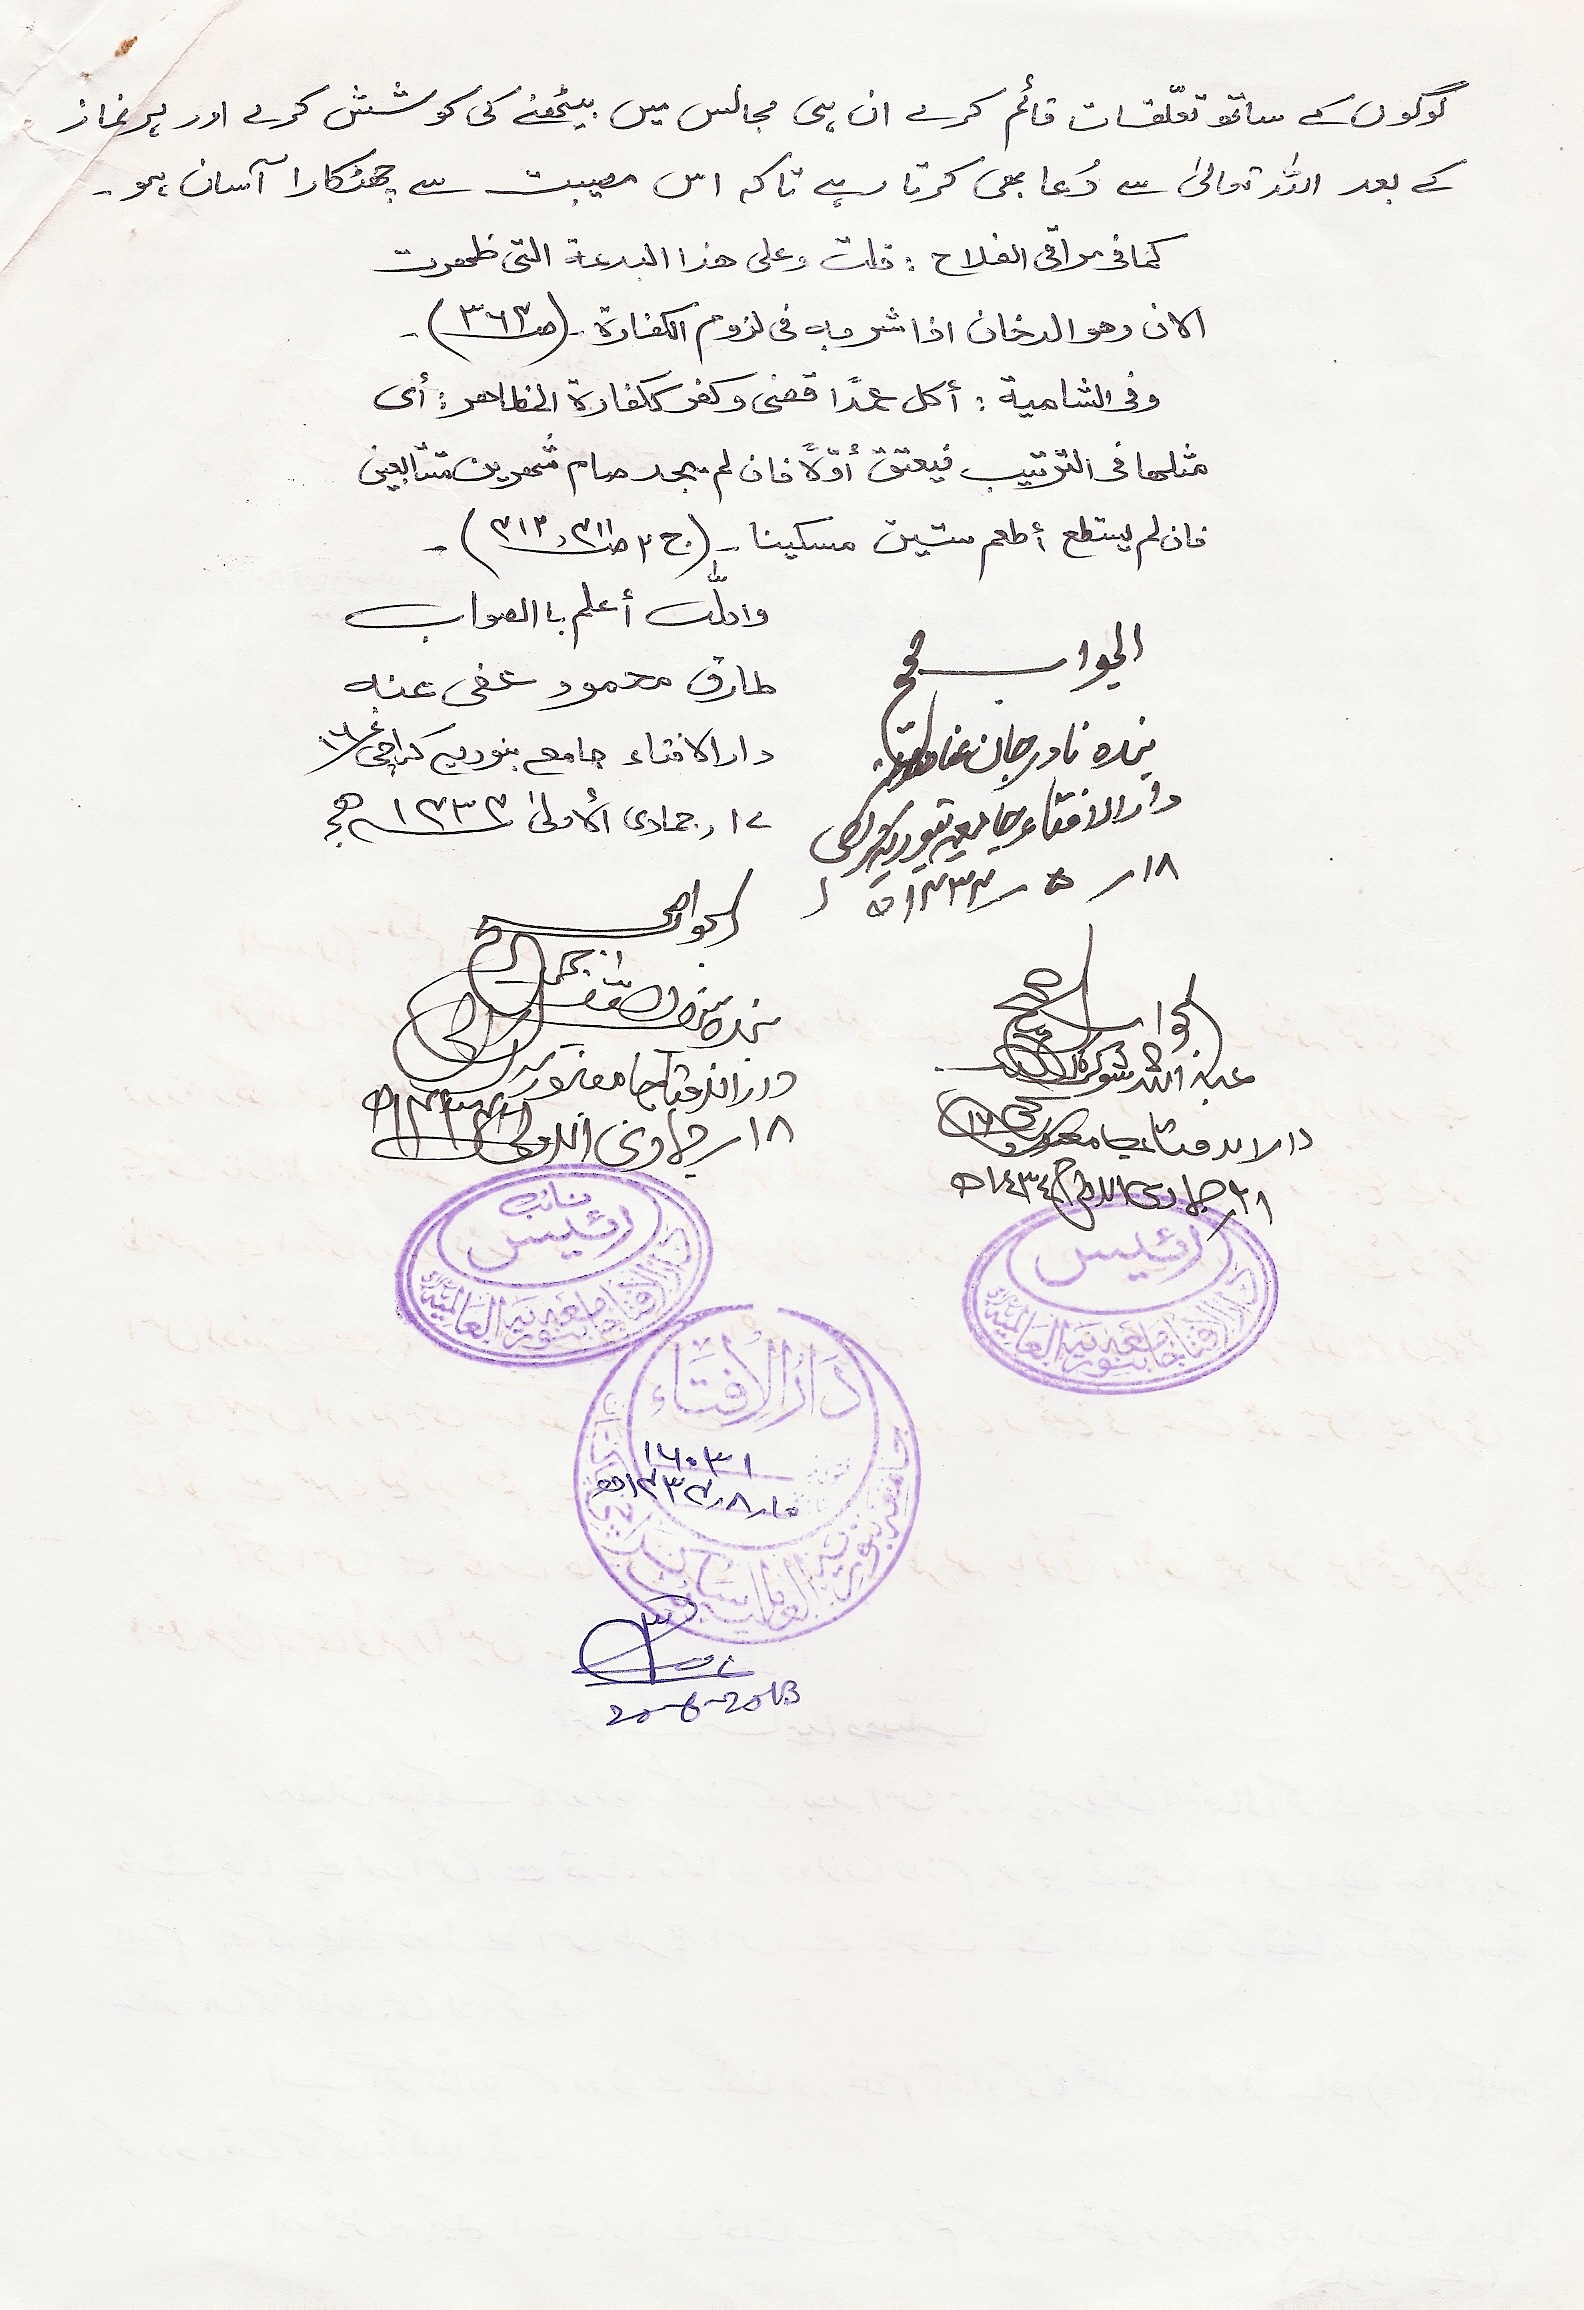 لوگوں کے ساتھ تعلّقات قائم کرے ان ہی مجالس میں بیٹھنے کی کوشش کرے اور ہر نماز
کے بعد اللہ تعالیٰ سے دُعا بھی کرتا رہے تاکہ اس مصیبت سے چھٹکارا آسان ہو۔
كما فى مراقى الفلاح : قلت وعلى هذا البدعة التى ظهرت
الان وهو الدخان اذا شربه فى لزوم الكفارة ۔ (صـ ٣٦٤) ۔
وفى الشامية : أكل عمدًا قضى وكفر ككفارة المظاهر : أى
مثلها فى الترتيب فيعتق أوّلاً فان لم يجد صام شهرين متتابعين
فان لم يستطع أطعم ستين مسكينا ۔ (ج ٢ صـ ٤١١، ٤١٢) ۔
واللہ أعلم باالصواب
طارق محمود عفی عنہ
دارالافتاء جامعہ بنوریہ کراچی ١٦
١٧ ر جمادی الأولیٰ ١٤٣٤ ھ
الجواب صحیح
بندہ نادر جان
دارالافتاء جامعہ بنوریہ کراچی
١٨ ر ٥ ر ١٤٣٤ ھ
الجواب صحیح
بندہ
دارالافتاء جامعہ بنوریہ
١٨ ر جمادی الاولیٰ ١٤٣٤ ھ
الجواب صحیح
عبد اللہ شوکت
دارالافتاء جامعہ بنوریہ
جمادی الاولیٰ ١٤٣٤ ھ
نائب
رئیس
دارالافتاء جامعہ بنوریہ العالمیہ
رئیس
دارالافتاء جامعہ بنوریہ العالمیہ
دَارُ الْاِفْتَاء
١٦٠٣١
١٤٣٤ھ
جامعہ بنوریہ العالمیہ سائٹ کراچی
20-6-2013